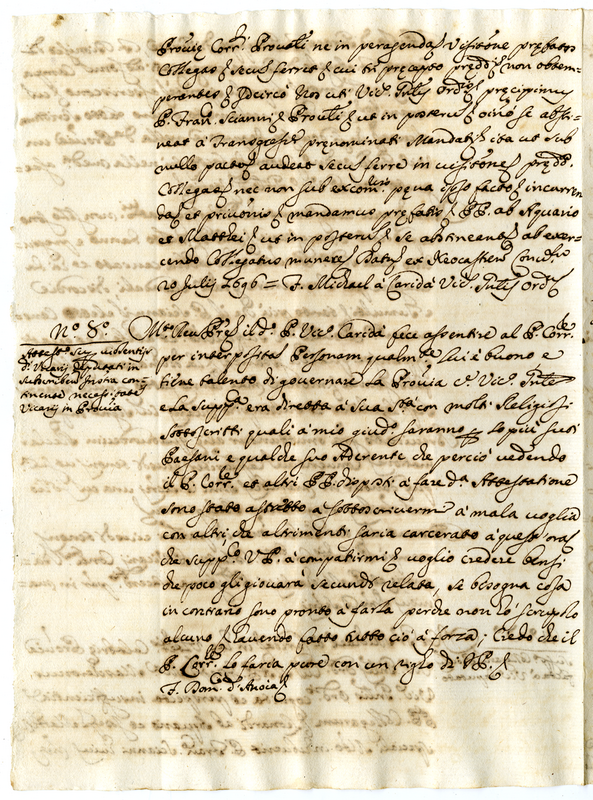 Provię Corr. Provli ne in peragenda visitõne pręfatos
Collegas secus ferret cui tñ pręcepto prędd. non obtem-
perantes Idcircò Nos uti Vic. Gñlis ordis pręcipimus
P. Fran. Scianni Provli ut in posterũ oino se absti-
neat à Transgress. prenominati Mandati ita ut sub
nullo pacto audeat secus ferre in visitõne prędd.
Collegas nec non sub excom.nis pęna ipso facto incurren
da, et privõnis mandamus pręfatis PP. ab Aquario
et Matthei ut in posterũ se abstineant ab exer-
cendo Collegatus munere Datus ex Neocastren
20 Julij 1696 = F. Michael à Caridà Vic. Gñlis ord.s
N.o 8.o
Attest.e seu violentię
di Vicarij Deputati in
subscribendis
necessitate
Vicarij in Provia
M.to Reu. Pre il d.o P. Vic. Caridà fece assentire al P. Corr.le
per interposita Personam qualm.te lui è buono e
tiene talento di governare la Provia
e la supp.ca era diretta à sua Stà con molti Religiosi
sottoscritti quali à mio giud.o saranno lo più suoi
Paesani e qualche suo Aderente che perciò vedendo
il P. Corr.le et altri PP. disposti à fare d.a Attestatione
sono stato astretto à sottoscrivermi à mala voglia
con altri che altrimenti saria carcerato à quest'ora
che supp.co V.P. à compatirmi voglio credere bensì
che poco gli giovarà secundũ relata, se bisogna cosa
in contrario sono pronto à farla perche non hò scrupolo
alcuno havendo fatto tutto ciò à forza; Credo che il
P. Corr.le lo faria pure con un viglo di V.P.
F. Dom.co d'Anoia